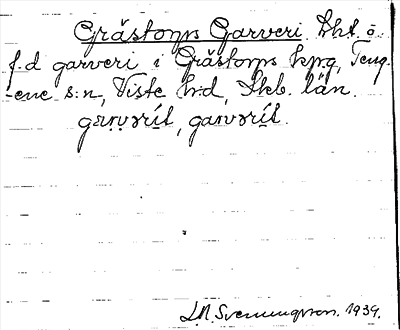 Grästorps Garveri. lht. o.
f.d garveri i Grästorps kpg, Teng-
-ene s:n, Viste h:d, Skb. län.
garvərit, garvərit.
S.N. Svenungsson. 1939.